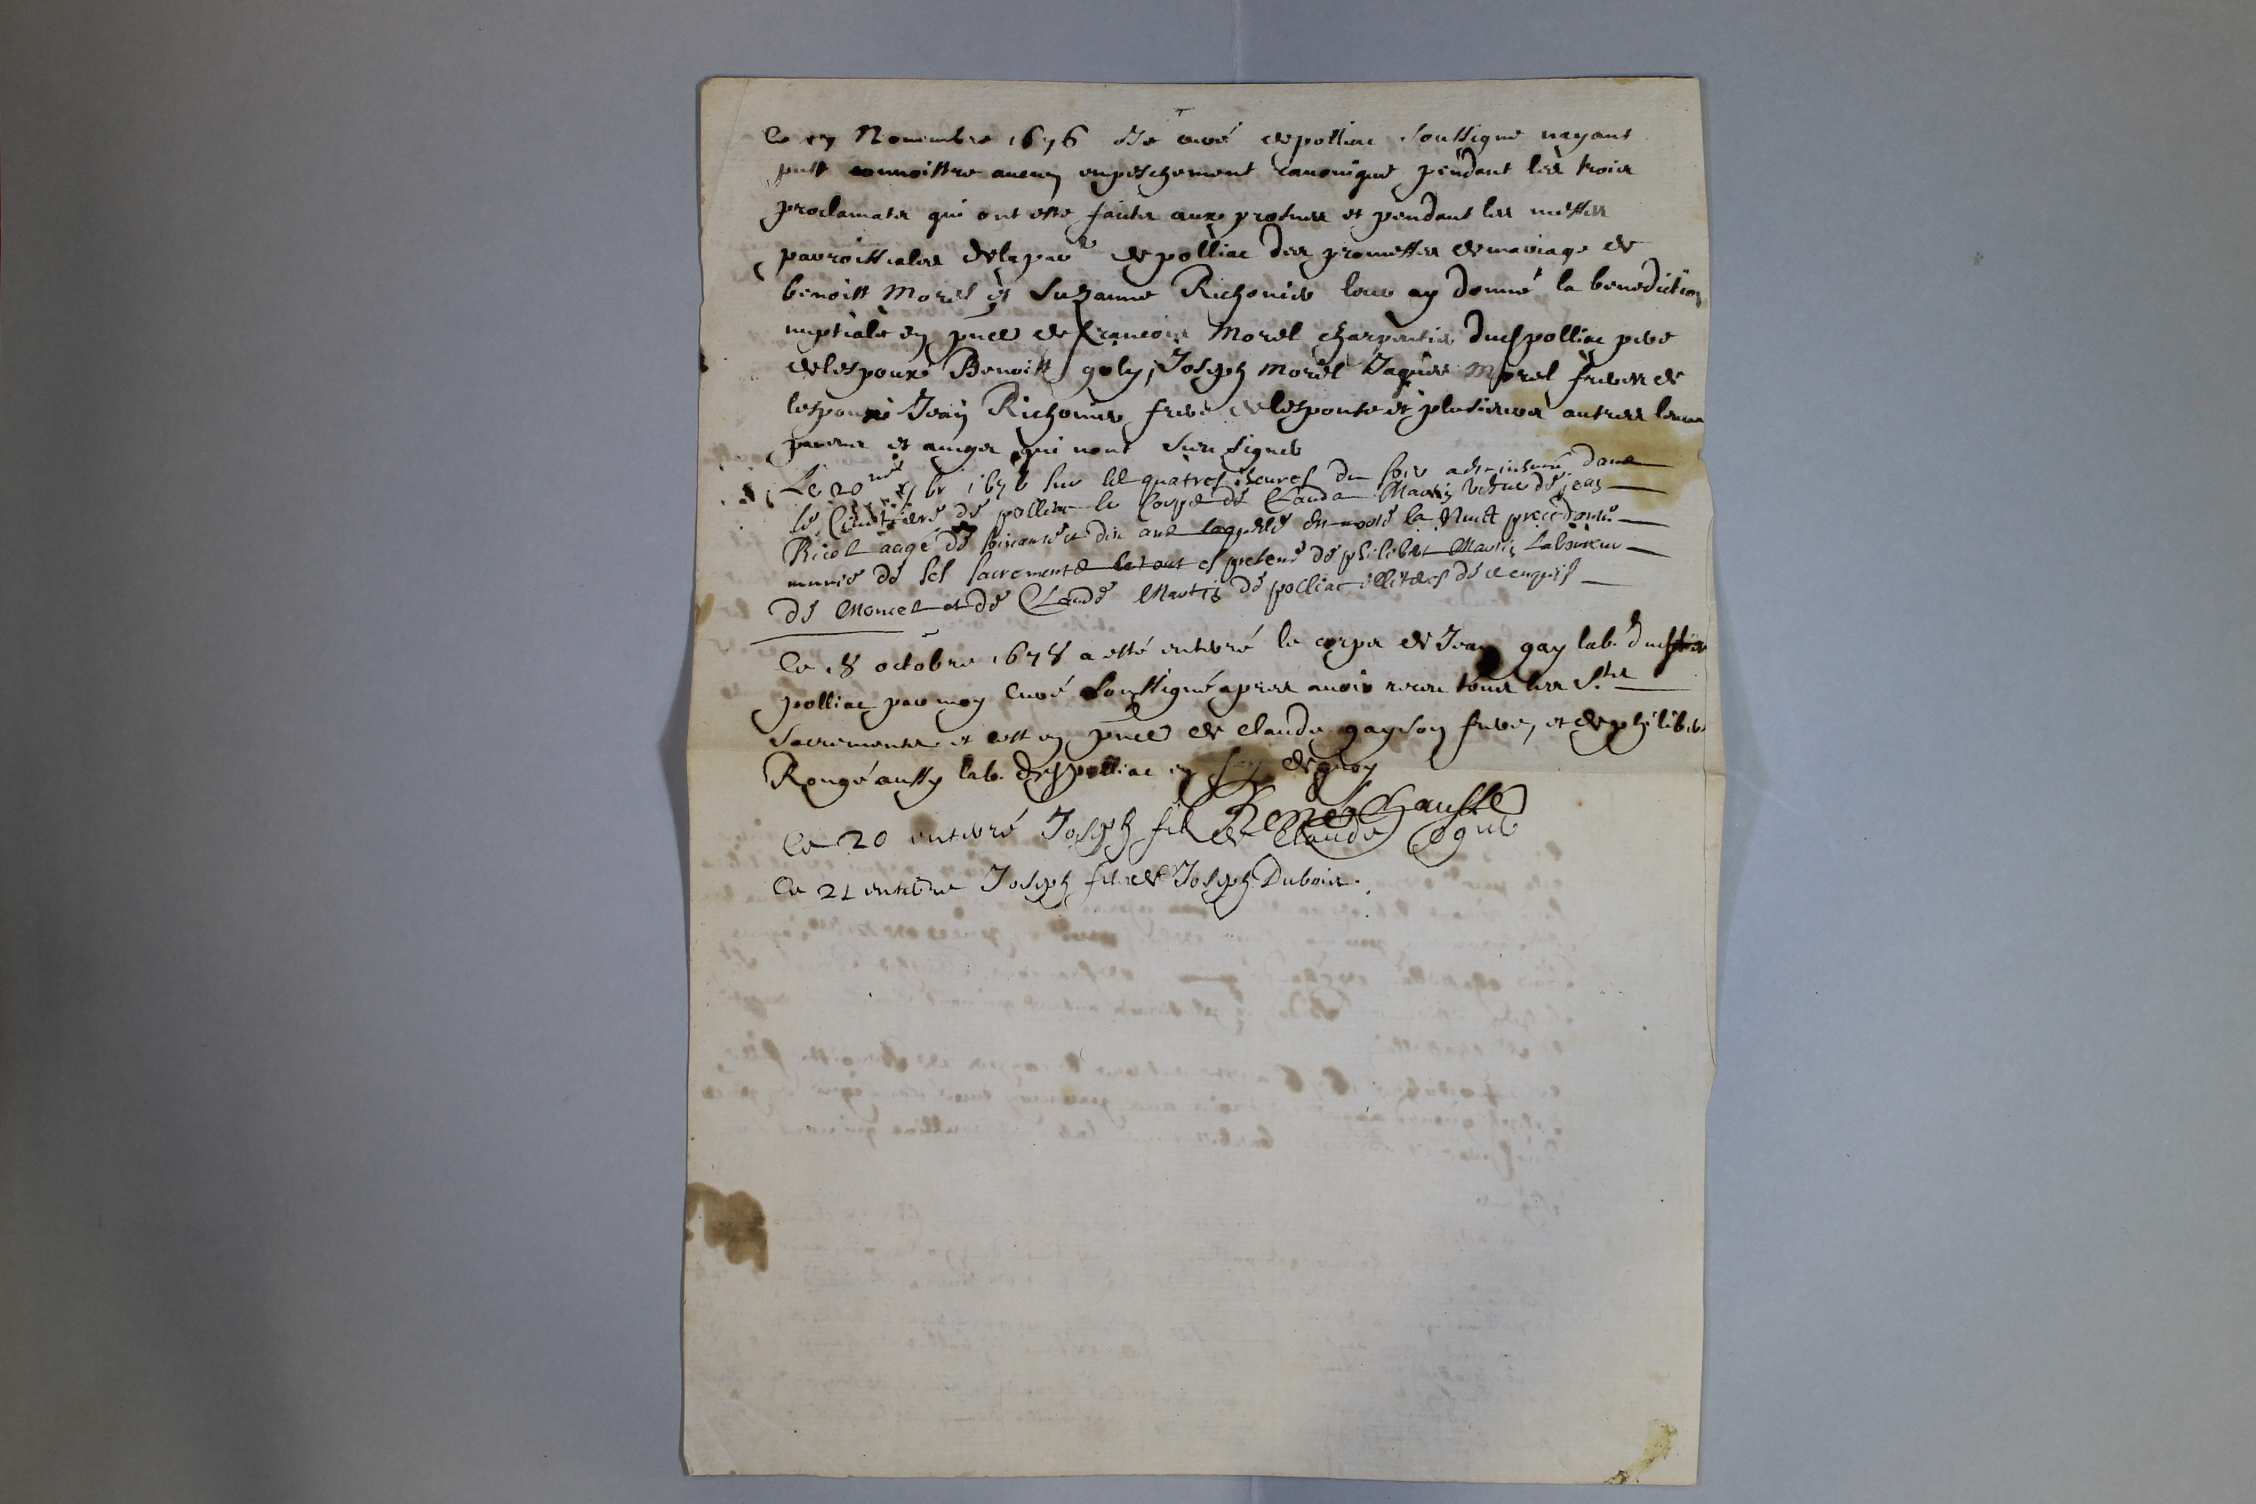 Ce 17 Nouembre 1676 Je curé de polliac soussigné nayant
pust connoistre aucun empeschement canonique pendant les trois
proclamates qui ont esté faites aux prosnes et pendant les messes
parroissiales de la par de polliac des promesses de mariage de
benoist Morel et Suzanne Richonier leur ay donné la benediction
nuptiale en pnce de francois Morel charpentier dud polliac pere
de lespoux Benoist goly, Joseph Morel Jaques Morel freres de
lespoux Jean Richonier frere de lespouse et plusieurs autres leurs
parens et amys qui nont sceu signer
Le 20 1676 sur les quatres heures du soir a dans
le Cimitiere de polliac le Corps de Clauda Martin vefue de jean
Ricol aage de soixante et dix ans laquelle est morte la Nuict precedente
munie de ses sacrements et presens de philibert Martin Laboureur
de Moncel et de Claude Martin de polliac illiteres de ce enquis
Ce 18 octobre 1678 a esté enterré le corps de Jean gay lab. dud
polliac par moy Curé soussigné apres auoir receu tous les Sts
sacremens et cest en pnce de claude gay son frere, et de philibert
Rongé aussy lab. dud polliac en foy de quoy
Chausse
Ce 20 enterré Joseph fils de Claude
Ce 21 enterré Joseph fils de Joseph Dubois.